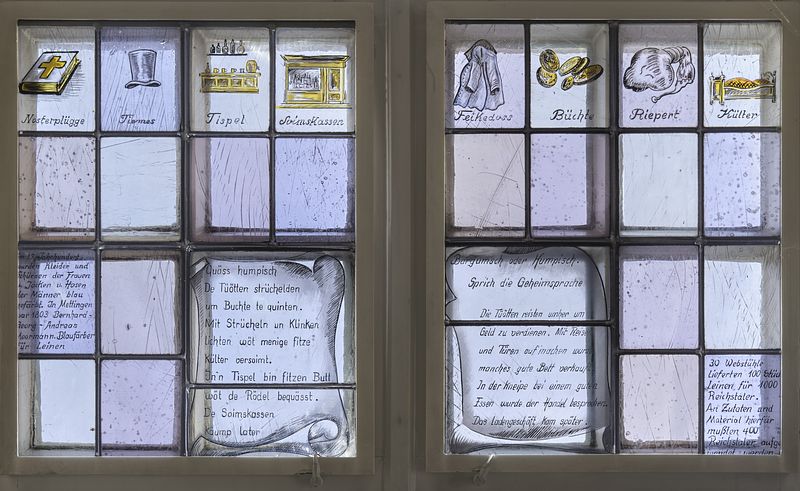 Nosterplügge
Tiemes
Tispel
Soimskassen
Feikedoos
Büchte
Riepert
Külter
Jahrhundert
wurden Kleider und
Schürzen der Frauen
Jacken u. Hosen
der Männer blau
gefärbt. In Mettingen
war 1803 Bernhard-
Georg-Andreas
Moormann Blaufärber
für Leinen
Quäss humpisch
De Tüötten strüchelden
um Buchte te quinten.
Mit Strücheln un Klinken
lichten wöt menige fitze
Külter versoimt.
In'n Tispel bin fitzen Butt
wöt de Rödel bequässt.
De Soimskassen
quump later
Bargunsch oder Humpisch.
Sprich die Geheimsprache
Die Tüötten reisten umher um
Geld zu verdienen. Mit Reisen
und Türen aufmachen wurde
manches gute Bett verkauft.
In der Kneipe bei einem guten
Essen wurde der Handel besprochen.
Das Ladengeschäft kam später.
30 Webstühle
lieferten 100 Stück
Leinen, für 4000
Reichstaler.
An Zutaten und
Material hierfür
mußten 400
Reichstaler aufge
wendet werden